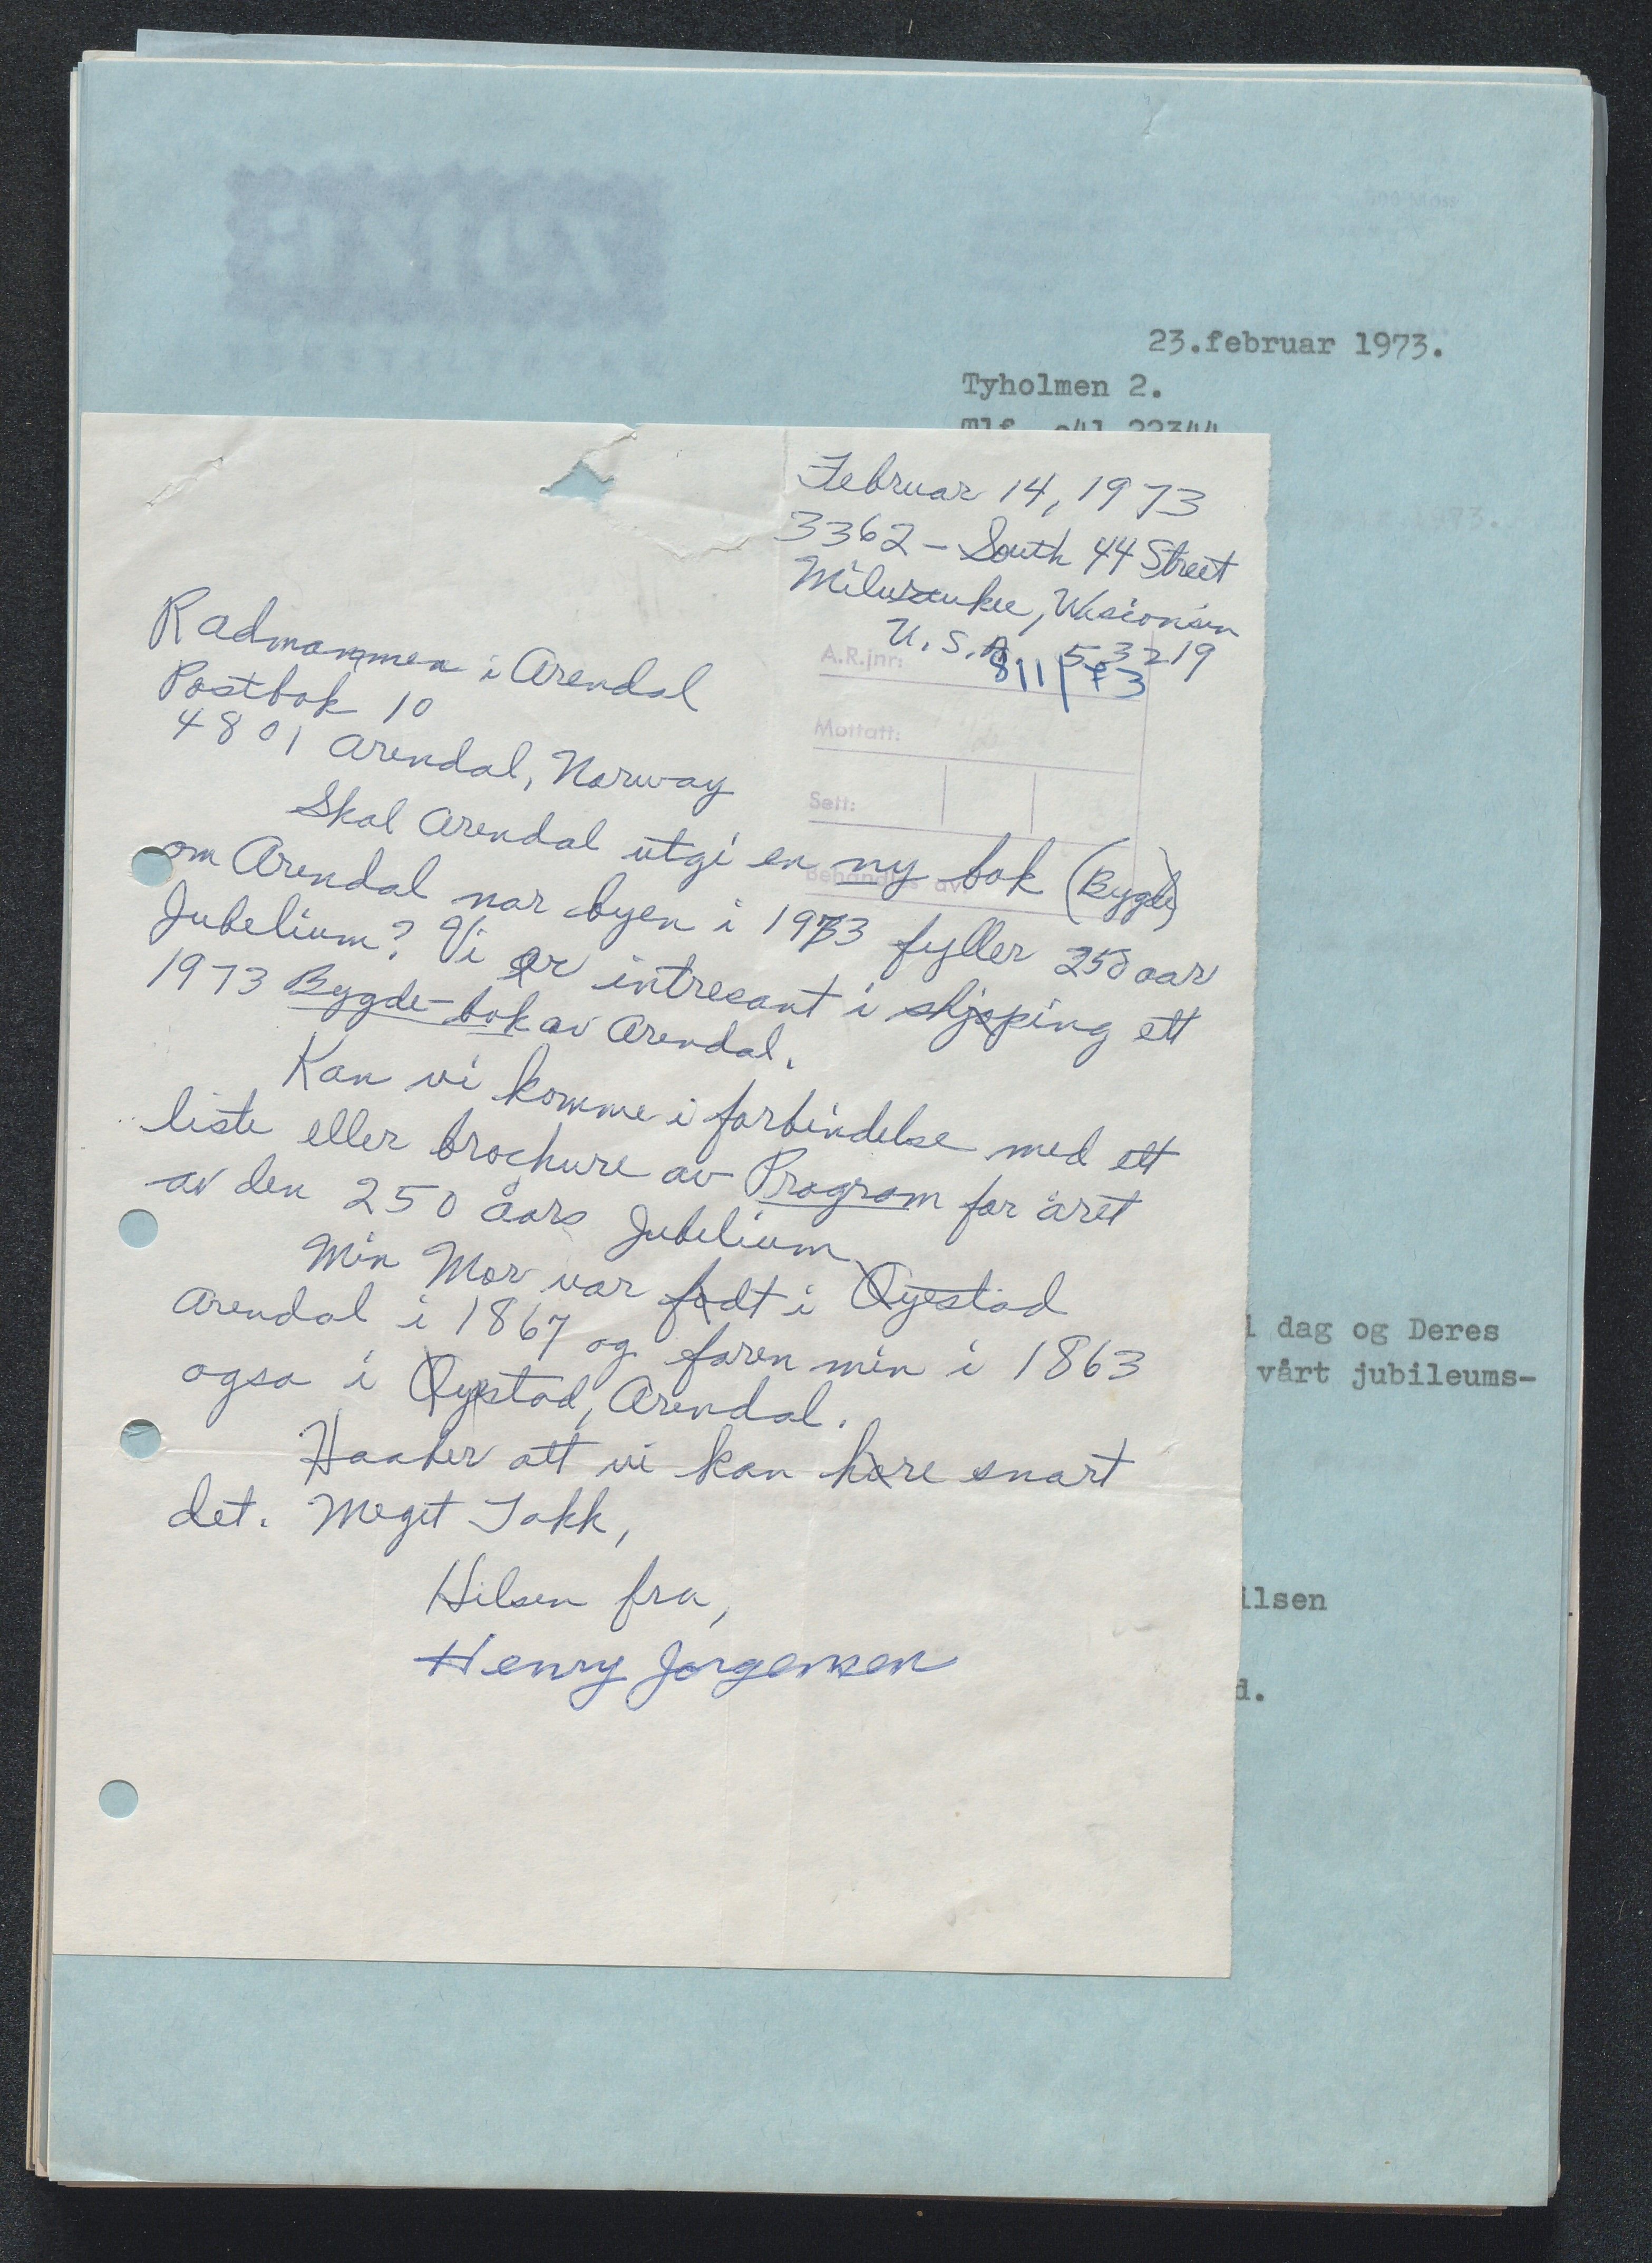 23.februar 1973.
Tyholmen 2.
Februar 14, 1973
3362 - South 44 Street
Milwaukee, Wisconsin
U.S.A. 53219
A.R.jnr: 811/73
Mottatt:
Sett:
Behandles av:
Radmannmen i Arendal
Postbok 10
4801 Arendal, Norway
Skal Arendal utgi en ny bok (Bygde)
om Arendal nar byen i 1973 fyller 250 aar
Jubelium? Vi er intresant i skjøping ett
1973 Bygde-bok av Arendal.
Kan vi komme i forbindelse med ett
liste eller brochure av Program for året
av den 250 åars Jubelium
Min Mor var født i Øyestad
Arendal i 1867 og faren min i 1863
ogsa i Øyestad, Arendal.
Haaber att vi kan høre snart
det. Meget Takk,
Hilsen fra,
Henry Jorgensen
dag og Deres
vårt jubileums-
ilsen
d.